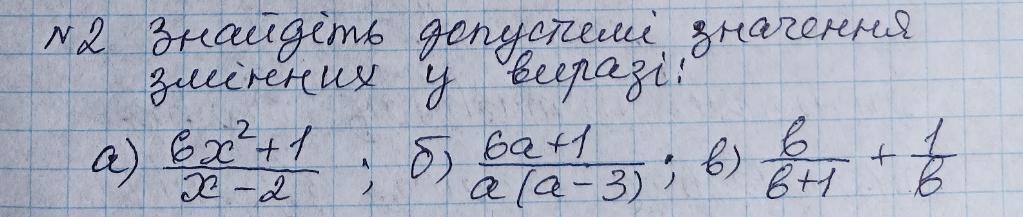 №2 Знайдіть допустимі значення
змінних у виразі:
а) (6x²+1)/(x-2) ; б) (6a+1)/(a(a-3)) ; в) b/(b+1) + 1/b